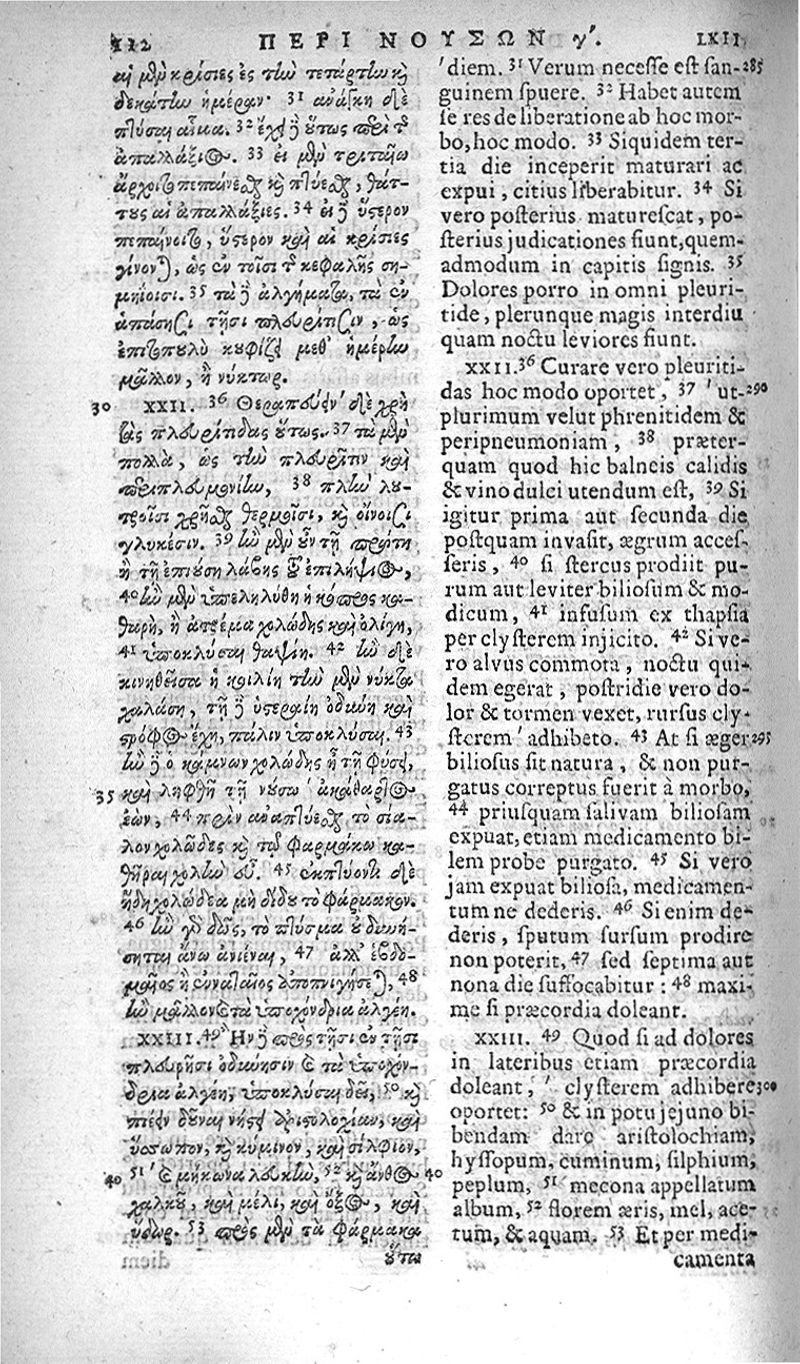 112 ΠΕΡΙ ΝΟΥΣΩΝ γ'. LXII
αἱ μὲν κρίσιες ἐς τὴν τετάρτην καὶ
δεκάτην ἡμέραν· 31 ἀνάγκη δὲ
πτύσαι αἷμα. 32 ἔχει δὲ οὕτως περὶ τῆς
ἀπαλλάξιος. 33 εἰ μὲν τριταῖος
ἄρχοιτο πεπαίνεσθαι καὶ πτύεσθαι, θάτ-
τους αἱ ἀπαλλάξιες. 34 εἰ δὲ ὕστερον
πεπαίνοιτο, ὕστερον καὶ αἱ κρίσιες
γίνονται, ὡς ἐν τοῖσι τῆς κεφαλῆς ση-
μηίοισι. 35 τὰ δὲ ἀλγήματα, τὰ ἐν
ἁπάσῃσι τῇσι πλευρίτισιν, ὡς
ἐπιτοπουλὺ κουφίζει μεθ' ἡμέρην
μᾶλλον, ἢ νύκτωρ.
30 XXII. 36 Θεραπεύειν ' δὲ χρὴ
τὰς πλευρίτιδας οὕτως. 37 τὰ μὲν
πολλὰ, ὡς τὴν πλευρῖτιν καὶ
περιπλευμονίην, 38 πλὴν λου-
τροῖσι χρῆσθαι θερμοῖσι, καὶ οἴνοισι
γλυκέσιν. 39 ἢν μὲν οὖν τῇ πρώτῃ
ἢ τῇ ἐπιούσῃ λάβῃς τῆς ἐπιλήψιος,
40 ἢν μὲν ὑπεληλύθῃ ἡ κόπρος κα-
θαρὴ, ἢ ἀτρέμα χολώδης καὶ ὀλίγη,
41 ὑποκλύσαι θαψίῃ. 42 ἢν δὲ
κινηθεῖσα ἡ κοιλίη τὴν μὲν νύκτα
χαλάσῃ, τῇ δὲ ὑστεραίῃ ὀδύνη καὶ
στρόφος ἔχῃ, πάλιν ὑποκλύσαι. 43
ἢν δὲ ὁ κάμνων χολώδης ᾖ τῇ φύσει,
35 καὶ ληφθῇ τῇ νούσῳ ' ἀκάθαρτος
ἐὼν, 44 πρὶν ἀναπτύεσθαι τὸ σία-
λον χολῶδες καὶ τῷ φαρμάκῳ κα-
θῆραι χολὴν εὖ. 45 ἐκπτύοντι δὲ
ἤδη χολώδεα μὴ δίδου τὸ φάρμακον.
46 ἢν γὰρ δῷς, τὸ πτύσμα οὐ δυνή-
σηται ἄνω ἀνιέναι, 47 ἀλλ' ἑβδο-
μαῖος ἢ ἐναταῖος ἀποπνιγήσεται, 48
ἢν μᾶλλον καὶ τὰ ὑποχόνδρια ἀλγέῃ.
XXIII. 49 Ἢν δὲ πρὸς τῇσι ἐν τῇσι
πλευρῇσι ὀδύνῃσιν καὶ τὰ ὑποχόν-
δρια ἀλγέῃ, ὑποκλύσαι δεῖ, 50 καὶ
πιεῖν δοῦναι νήστει ἀριστολοχίαν, καὶ
ὕσσωπον, καὶ κύμινον, καὶ σίλφιον,
40 51 ' καὶ μήκωνα λευκὴν, 52 καὶ ἄνθος 40
χαλκοῦ, καὶ μέλι, καὶ ὄξος, καὶ
ὕδωρ. 53 πρὸς μὲν τὰ φάρμακα
οὕτω
' diem. 31 Verum necesse est san- 285
guinem spuere. 32 Habet autem
se res de liberatione ab hoc mor-
bo, hoc modo. 33 Siquidem ter-
tia die inceperit maturari ac
expui, citius liberabitur. 34 Si
vero posterius maturescat, po-
sterius judicationes fiunt, quem-
admodum in capitis signis. 35
Dolores porro in omni pleuri-
tide, plerunque magis interdiu
quam noctu leviores fiunt.
XXII. 36 Curare vero pleuriti-
das hoc modo oportet, 37 ' ut- 290
plurimum velut phrenitidem &
peripneumoniam, 38 præter-
quam quod hic balneis calidis
& vino dulci utendum est, 39 Si
igitur prima aut secunda die
postquam invasit, ægrum acces-
seris, 40 si stercus prodiit pu-
rum aut leviter biliosum & mo-
dicum, 41 infusum ex thapsia
per clysterem injicito. 42 Si ve-
ro alvus commota, noctu qui-
dem egerat, postridie vero do-
lor & tormen vexet, rursus cly-
sterem ' adhibeto. 43 At si æger 295
biliosus sit natura, & non pur-
gatus correptus fuerit à morbo,
44 priusquam salivam biliosam
expuat, etiam medicamento bi-
lem probe purgato. 45 Si vero
jam expuat biliosa, medicamen-
tum ne dederis. 46 Si enim de-
deris, sputum sursum prodire
non poterit, 47 sed septima aut
nona die suffocabitur: 48 maxi-
me si præcordia doleant.
XXIII. 49 Quod si ad dolores
in lateribus etiam præcordia
doleant, ' clysterem adhibere 300
oportet: 50 & in potu jejuno bi-
bendam dare aristolochiam,
hyssopum, cuminum, silphium,
peplum, 51 mecona appellatum
album, 52 florem æris, mel, ace-
tum, & aquam. 53 Et per medi-
camenta